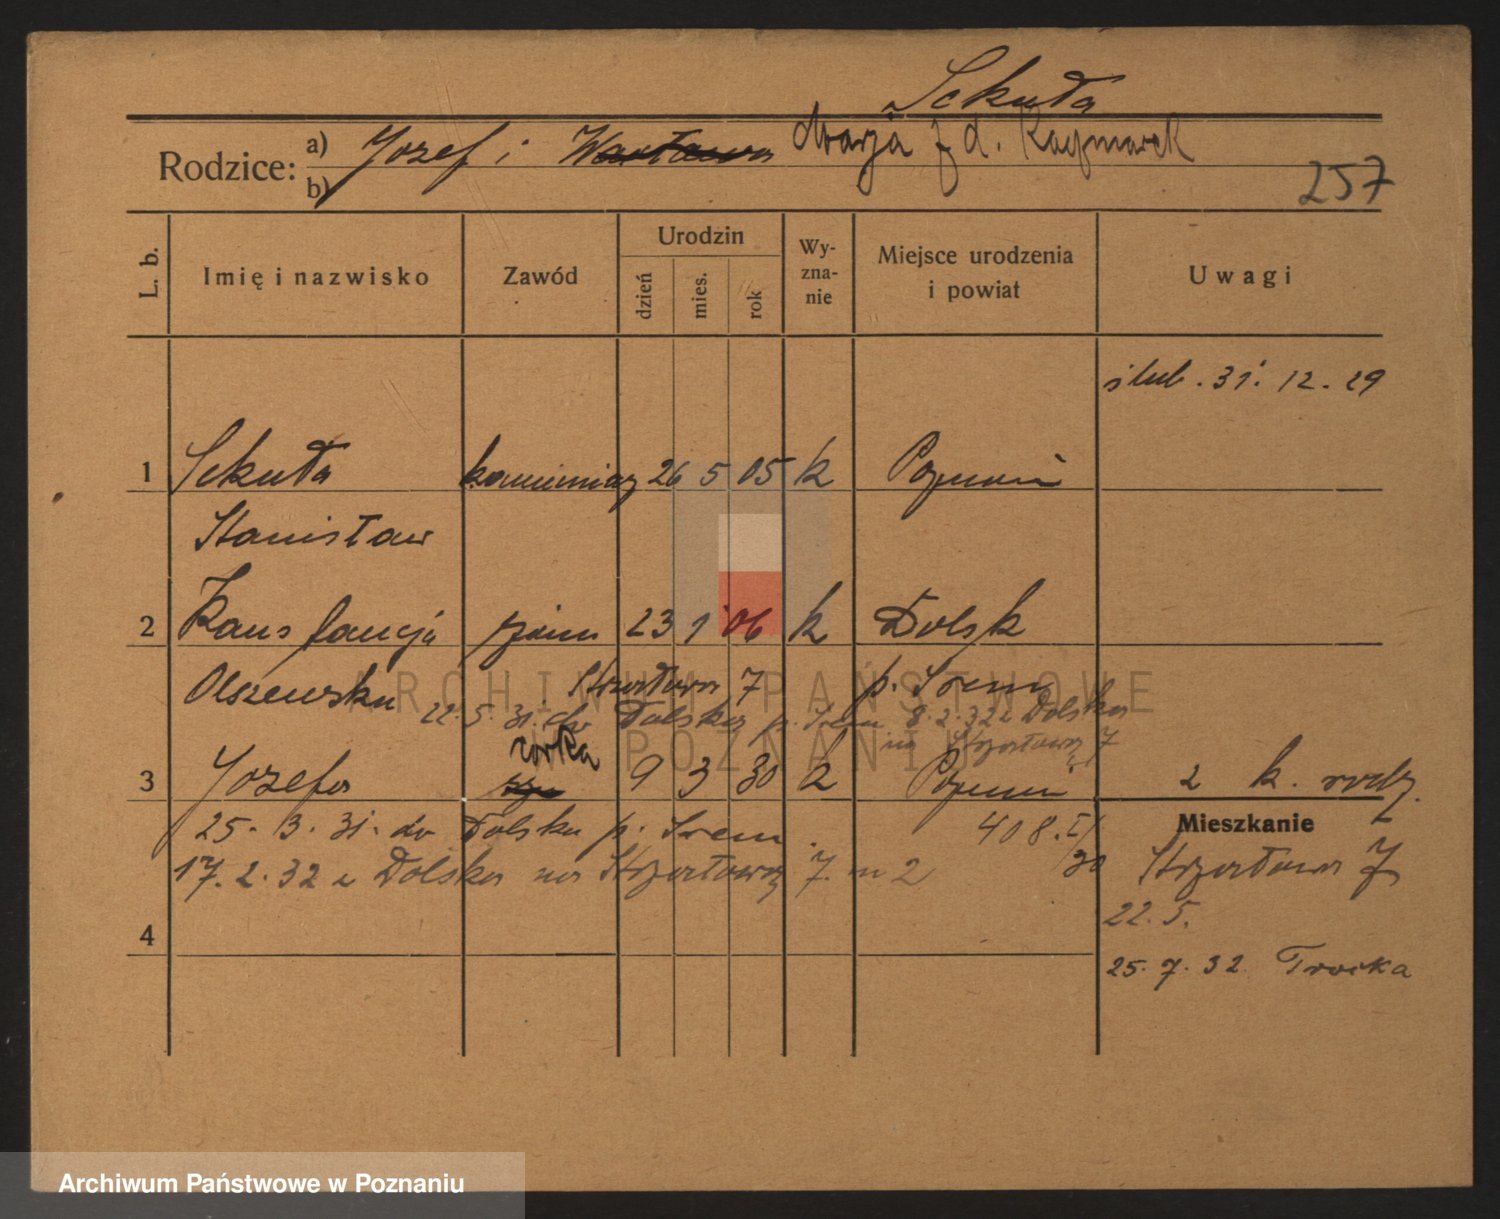 Sekuła
Rodzice: a) Jozef i Wacława Marja z d. Kaczmarek
b)
257
L. b. Imię i nazwisko Zawód Urodzin dzień mies. rok Wy-zna-nie Miejsce urodzenia i powiat Uwagi
ślub. 31. 12. 29
1 Sekuła kamieniarz 26 5 05 k Poznań
Stanisław
2 Konstancja żona 23 1 06 k Dolsk
Olszewska Strzałowa 7 p. Śrem
22. 5. 31. do Dolska p. Śrem 8. 2. 32 z Dolska
na Strzałową 7
córka
3 Jozefa syn 9 3 30 k Poznań 2 k. rodz.
25. 3. 31. do Dolska p. Śrem 408. I/30
Mieszkanie
17. 2. 32 z Dolska na Strzałową 7. m 2 Strzałowa 7
22. 5.
4
25. 7. 32 Trocka
ARCHIWUM PAŃSTWOWE
W POZNANIU
Archiwum Państwowe w Poznaniu